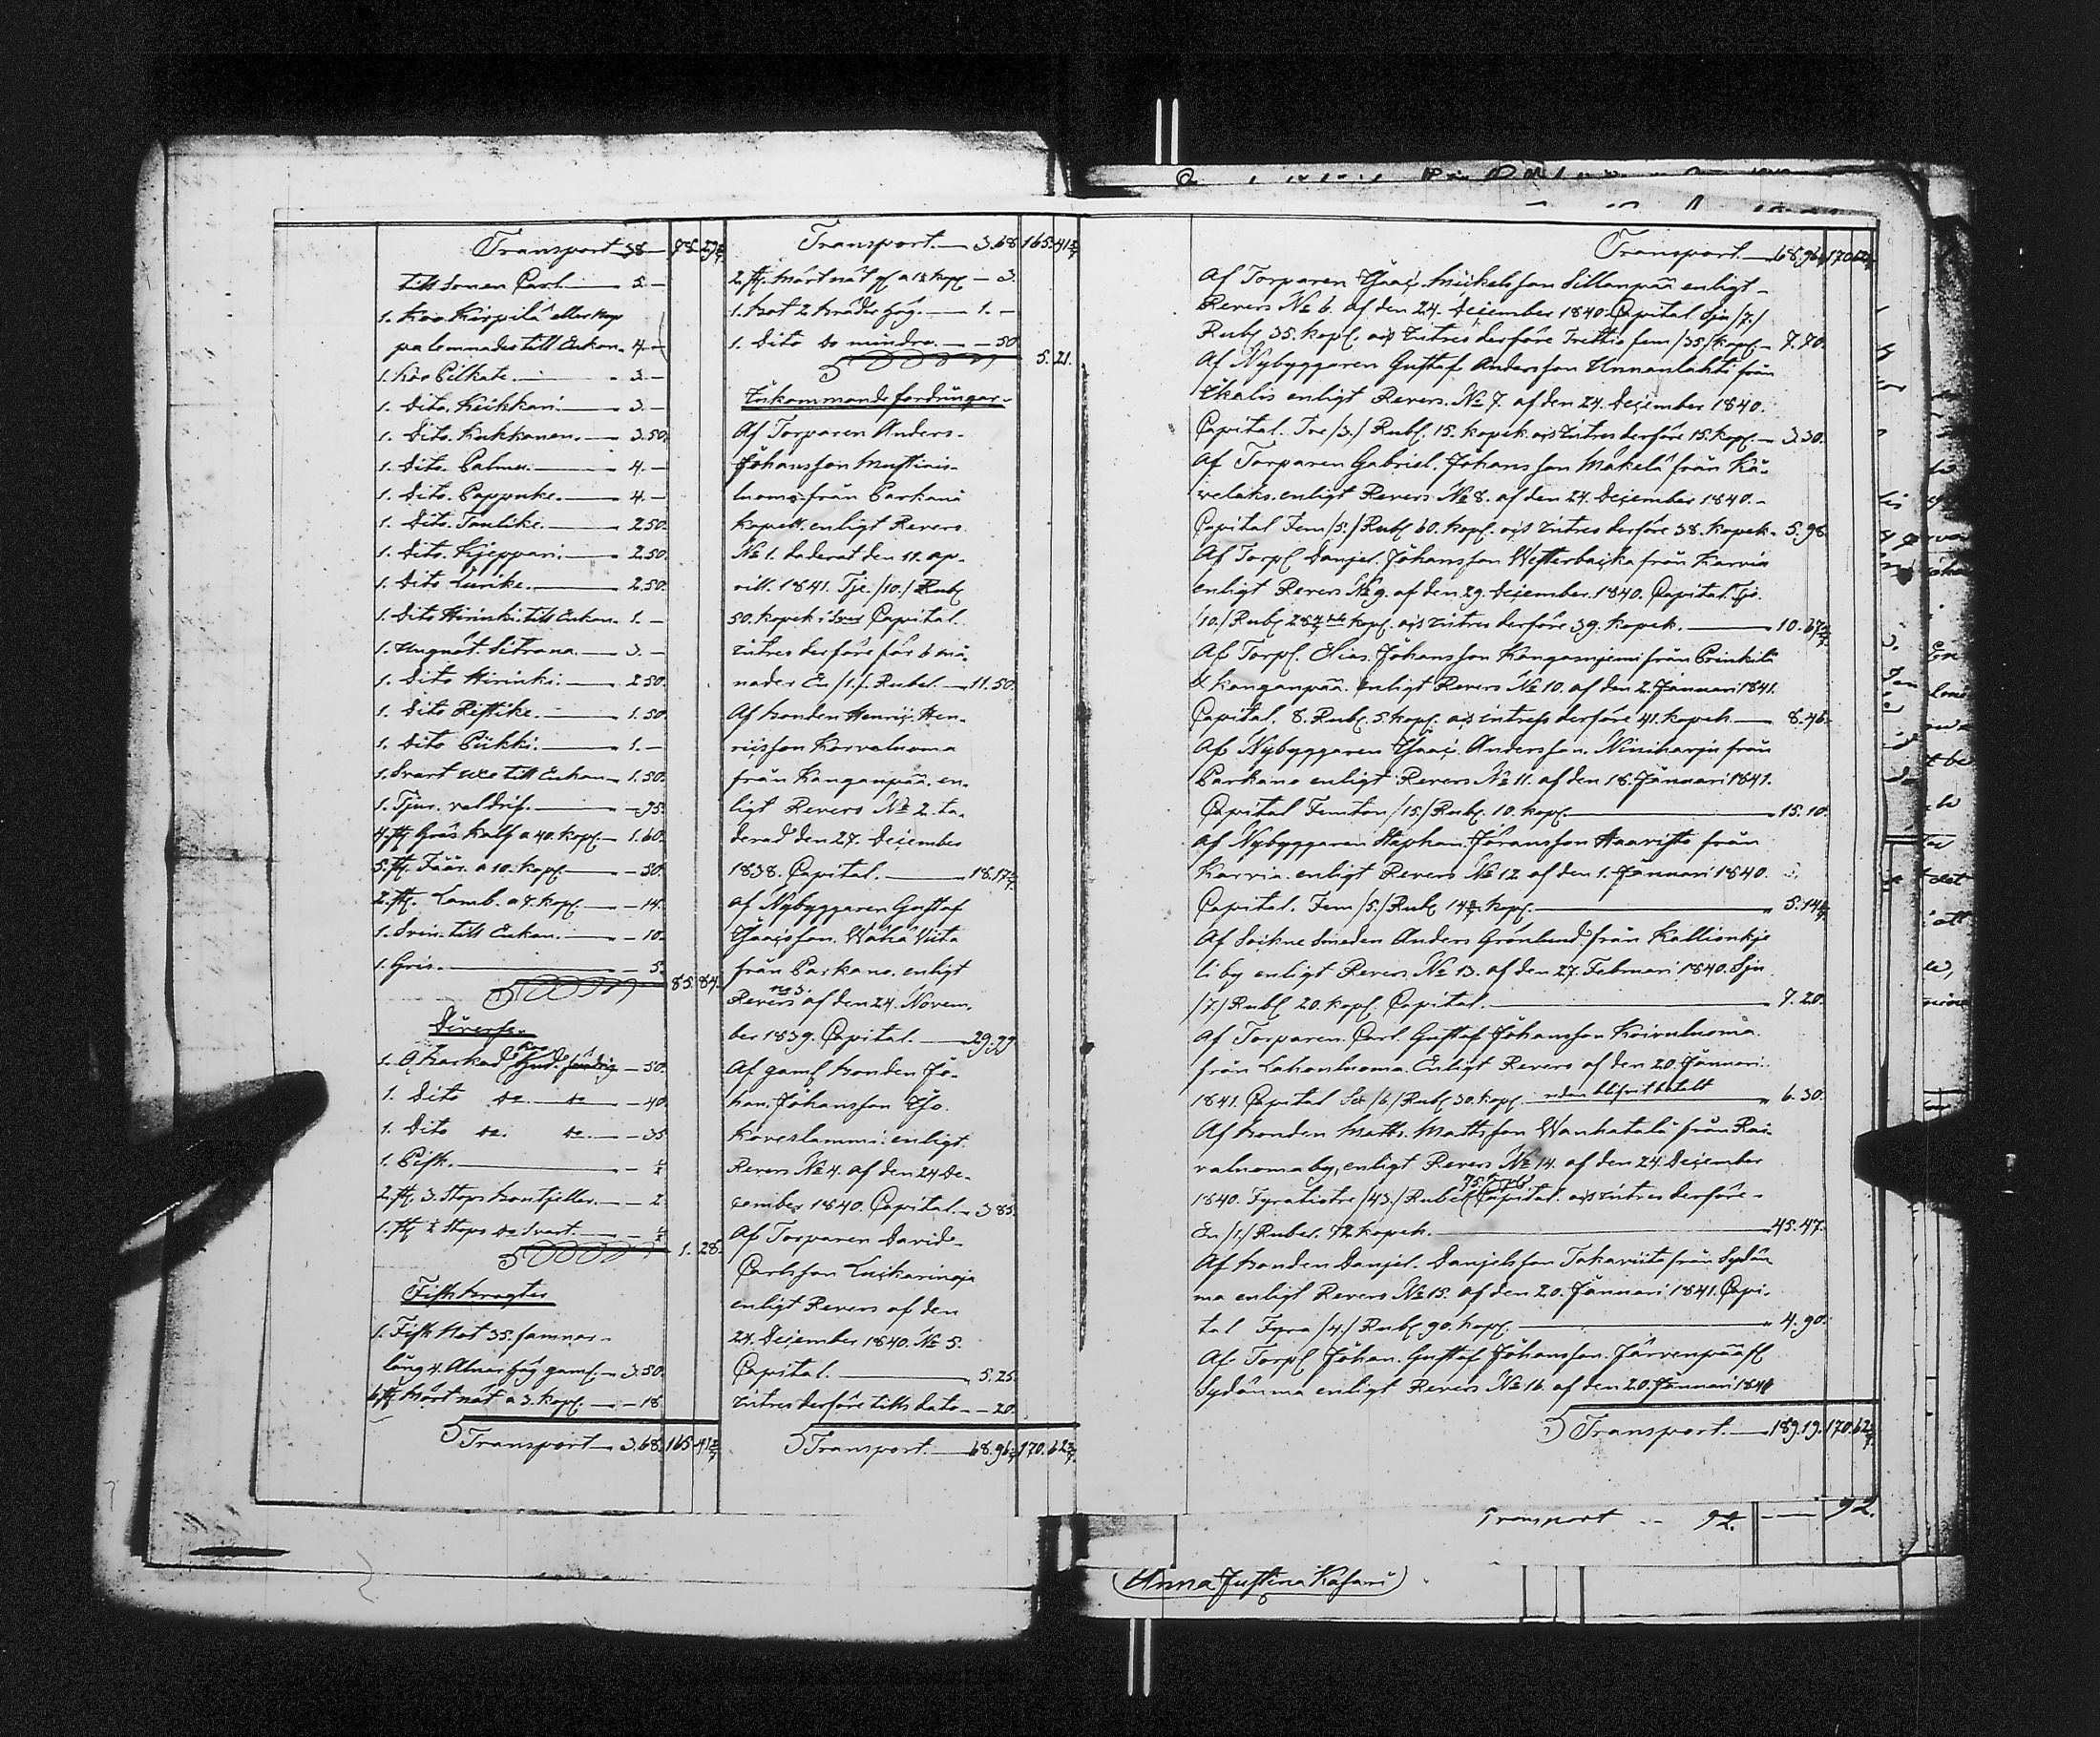 Transport 38 — 78. 29 2/7
till Sonen Carl — 5. —
1. Koo Kirpilä eller Kop
pa lemnades till Enkan — 4. —
1. Koo Pilkate — 3. —
1. Dito. Keikkari — 3. —
1. Dito. Kukkanen — 3. 50.
1. Dito. Palmu — 4. —
1. Dito. Pappuke — 4. —
1. Dito. Taulike — 2. 50.
1. Dito. Kjeppari — 2. 50.
1. Dito Lurike — 2. 50.
1. Dito Hirinki till Enkan — 1. —
1. Ungnöt. Sitruna — 3. —
1. Dito Hirinki — 2. 50.
1. Dito Ristike — 1. 50.
1. Dito Piikki — 1. —
1. Svart till Enkan — 1. 50.
1. Tjur. — 95.
4. st. Gräs kalf a 40. kop. — 1. 60.
5. st. Fåår. a 10. kop. — 50.
2. st. Lamb. a 7. kop. — 14.
1. Svin. till Enkan — 10.
1. Gris — 5. 85. 84.
Diverse.
1. Obarkad hud — 50.
1. Dito do do — 40.
1. Dito do do — 35
1. — 1/2
2. st. 3. Stops — 2
1. st. 1/2 Stops do Svart — 1/2
1. 28.
Fiskbragder
1. Fisk Not 35. famnar
lång 4. Alnar hög. gaml. — 3. 50.
6. st. Mört nät a 3. kop. — 18
Transport — 3. 68. 165. 41 2/7
Transport — 3. 68 165. 41 2/7
2. st. Mört nät gl. a 1 1/2 kop — 3.
1. 2. — 1. —
1. Dito do mindre — 50
5. 21.
Inkommande fordringar.
Af Torparen Anders
Johansson Mustiais
luoma från Parkano
kapell. enligt Revers
No 1. daterat den 11. ap
rill. 1841. Tjo /10./ Rubl
50. kopek i Capital
intres derföre för 6 må
nader En /1./ Rubel — 11. 50.
Af bonden Henric Hen
ricsson Korvaluoma
från Kanganpää. en
ligt Revers No 2. da
derad den 27. December
1838. Capital — 18. 17 1/7
Af Nybyggaren Gustaf
Isaacsson. Wähä Viita
från Parkano. enligt
Revers no 3. af den 24. Novem
ber 1839. Capital — 29. 99
Af gaml bonden Jo
han. Johansson Iso
Koverlammi enligt
Revers No 4. af den 24 De
cember 1840. Capital — 3 85.
Af Torparen David
Carlsson Luikarinoja
enligt Revers af den
24. December 1840. No 5.
Capital — 5. 25.
intres derföre tills dato — 20.
Transport — 68. 96 170. 62 2/7
Transport — 68. 96 170 62 2/7
Af Torparen Isaac Mickelsson Sillanpää enligt
Revers No 6. af den 24. December 1840. Capital Sju /7./
Rubl 35. kop. och intres derföre Trettio fem /35/ kop. — 7. 70.
Af Nybyggaren Gustaf Andersson Unnanlahti från
Ikalis enligt Revers. No 7. af den 24. December 1840.
Capital. Tre /3./ Rubl. 15. kopek. och intres derföre 15. kop. — 3. 30.
Af Torparen Gabriel. Johansson Mäkelä från Kä
velaks. enligt Revers No 8. af den 24. December 1840.
Capital Fem /5./ Rubl 60. kop. och intres derföre 38. kopek. 5. 98.
Af Torp. Danjel. Johansson Westerbacka från Karvia
enligt Revers No 9. af den 29. December. 1840. Capital. Tjo
/10./ Rubl 28 2/7 kop. och intres derföre 39. kopek. — 10. 67 2/7
Af Torp. Elias. Johansson Kangasnjemi från Prinkilä
& Kanganpää. enligt Revers No 10. af den 2. Januari 1841.
Capital. 8. Rubl. 5. kop. och intress derföre 41. kopek — 8. 46.
Af Nybyggaren Isaac Andersson. Niniharju från
Parkano enligt Revers No 11. af den 18. Januari 1841.
Capital Femton /15./ Rubl. 10. kop. — 15. 10.
Af Nybyggaren Stephan. Göransson Haavisto från
Karvia. enligt Revers No 12. af den 1. Januari 1840.
Capital. Fem /5./ Rubl 14 2/7 kop. — 5. 14 2/7
Af Sockne Smeden Anders Grönlund från Kallionkje
li by enligt Revers No 13. af den 27. Februari 1840. Sju
/7./ Rubl 20. kop. Capital — 7. 20.
Af Torparen. Carl. Gustaf Johansson Koivuluoma
från Lahonluoma. Enligt Revers af den 20. Januari
1841. Capital Sex /6./ Rubl. 30. kop. redan blifvit betalt 6. 30.
Af bonden Matts. Mattsson Wanhatalå från Rai
valuoma by, enligt Revers No 14. af den 24. December
1840. Fyratiotre /43/ Rubel 75. kop Capital. och intres derföre
En /1./ Rubel. 72 kopek. — 45. 47.
Af bonden Danjel. Danjelsson Takaviita från Sydän
ma enligt Revers No 15. af den 20. Januari 1841. Capi
tal Fyra /4./ Rubl 90. kop. — 4. 90.
Af Torp. Johan. Gustaf Johansson. Järvenpää
Sydänma enligt Revers No 16. af den 20. Januari 1841
Transport — 189. 19. 170. 62 2/7
Transport — 92. — 92.
Anna Justina Kasari